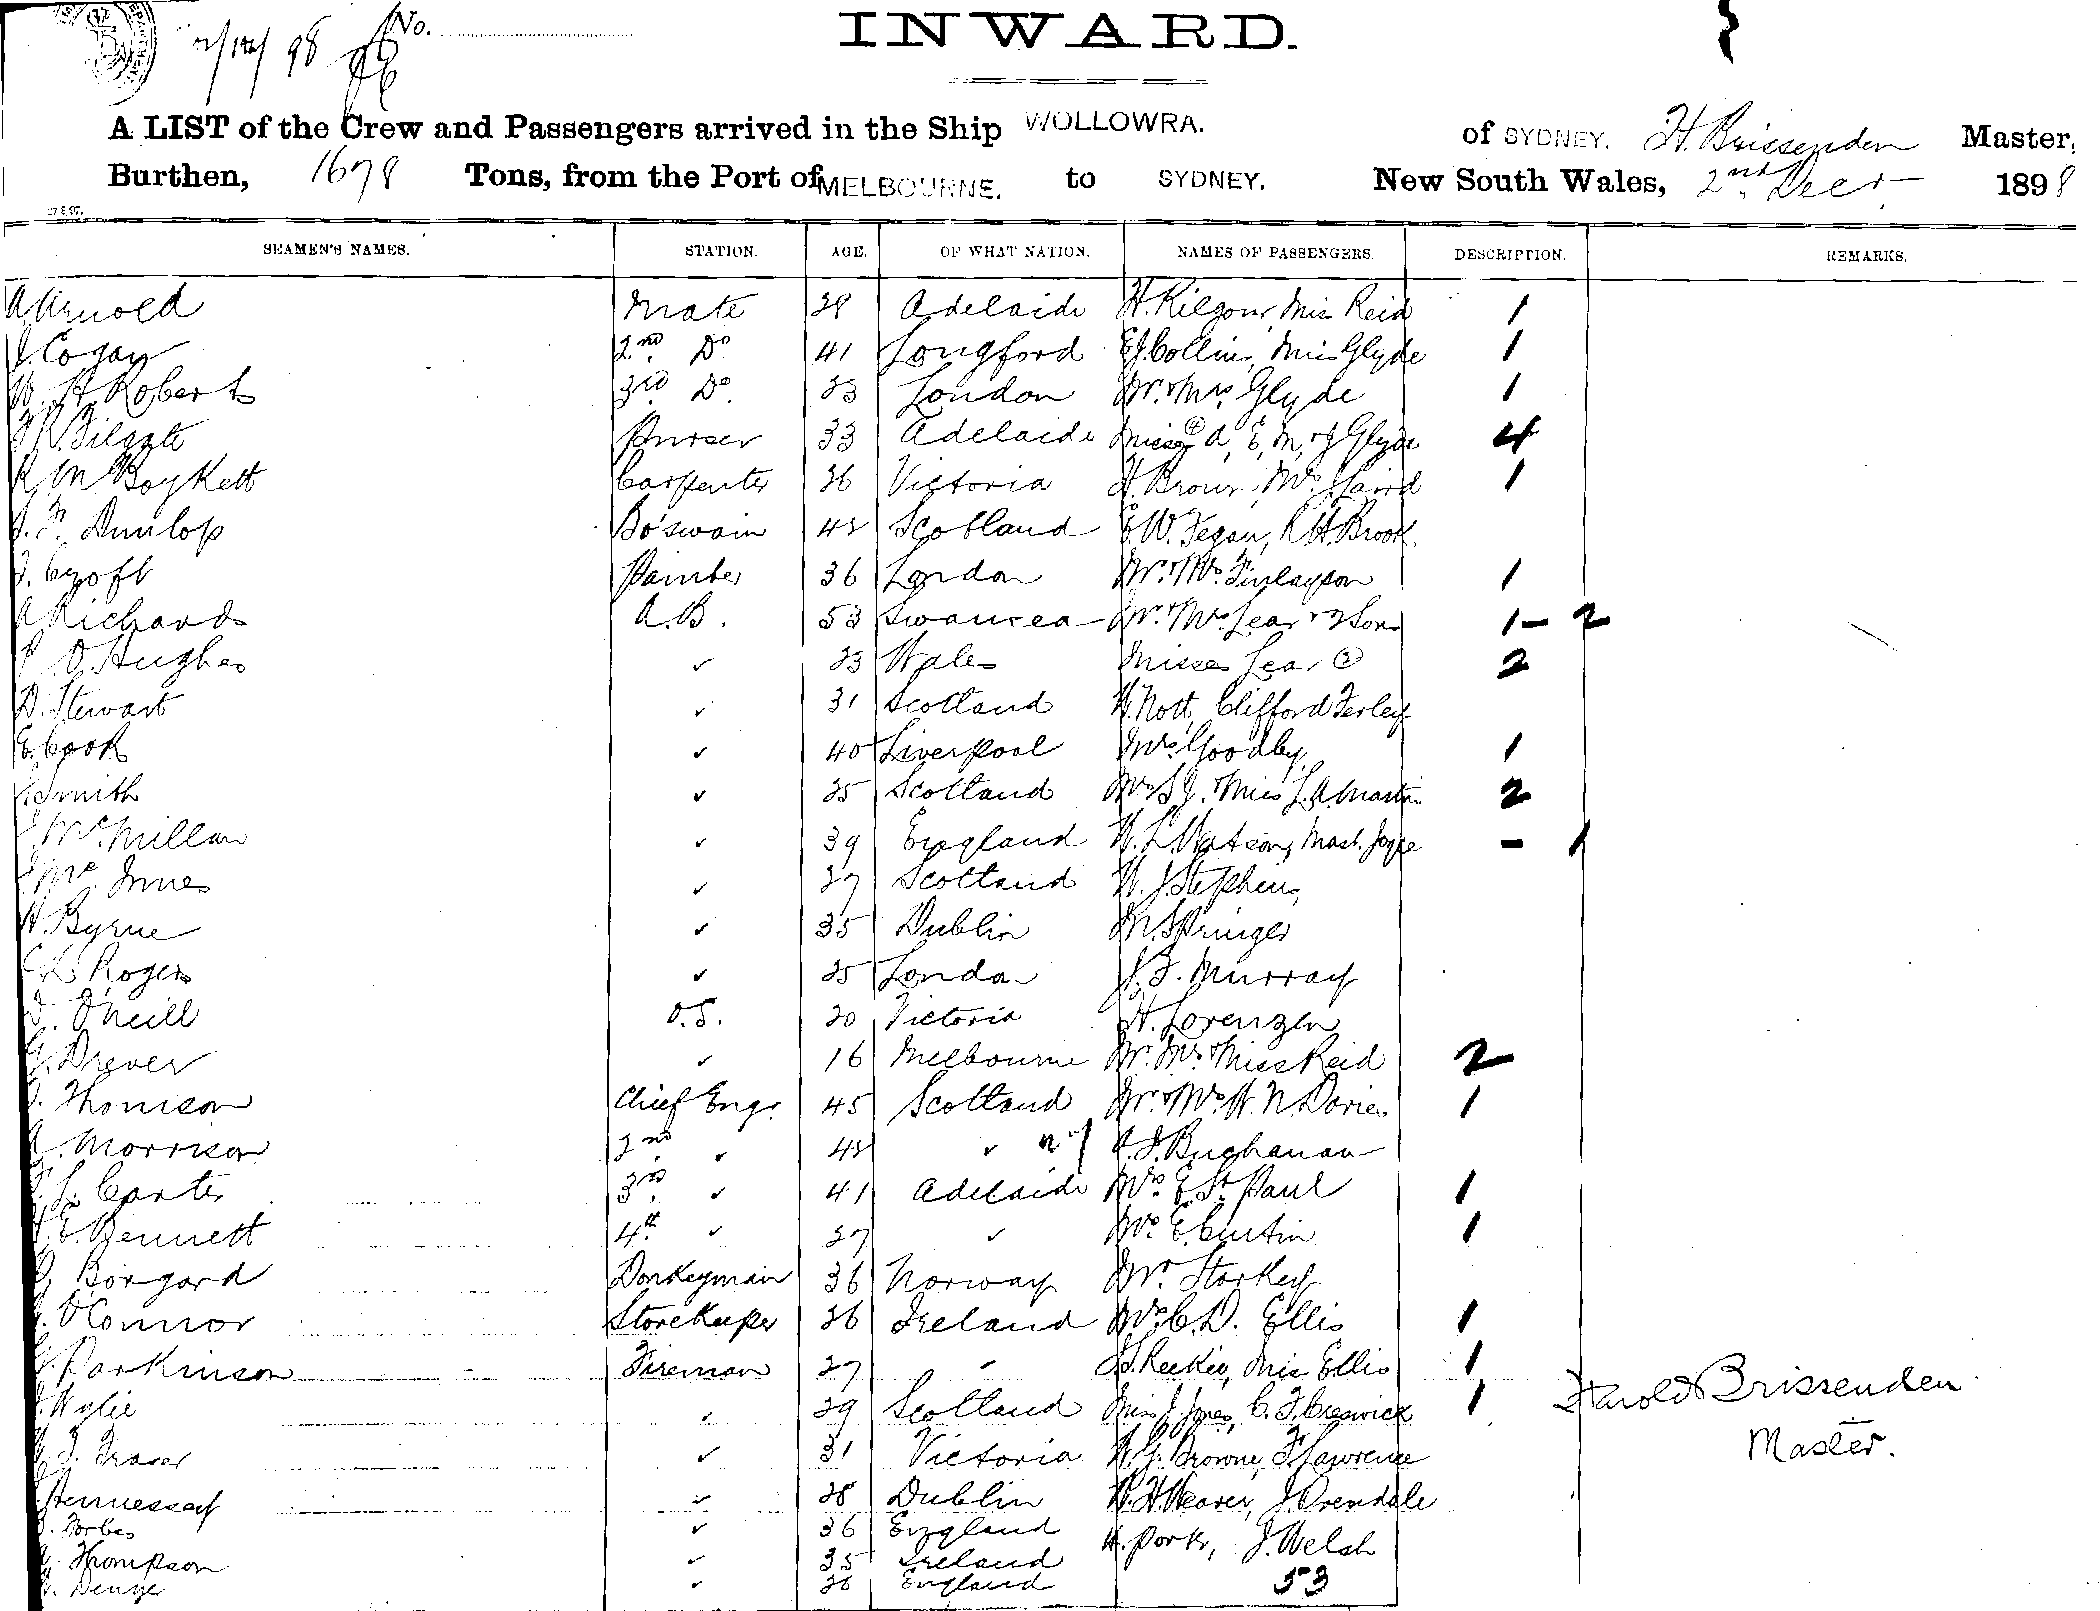 2/12/98 No.
INWARD.
A LIST of the Crew and Passengers arrived in the Ship WOLLOWRA. of SYDNEY. H. Brissenden Master,
Burthen, 1678 Tons, from the Port of MELBOURNE. to SYDNEY. New South Wales, 2nd Decr 1898
SEAMEN'S NAMES. STATION. AGE. OF WHAT NATION. NAMES OF PASSENGERS. DESCRIPTION. REMARKS.
A Arnold Mate 39 Adelaide H. Kilgour, Miss Reid 1
J. Cogan 2nd Do 41 Longford E J Collins, Miss Glyde 1
W. H Roberts 3rd Do 23 London Mr. Mrs Glyde 1
Bilgate Purser 33 Adelaide Misses 4 A, E, M, & J Glyde 4
R. M Boykett Carpenter 36 Victoria H. Brown, Mrs J Laird 1
J. F. Dunlop Bo'swain 42 Scotland E. W. Fegan, R H. Brook
J. Croft Painter 36 London Mr. Mrs. Finlayson 1
A Richards A.B. 53 Swansea Mr. Mrs Lear & 2 Sons 1 - 2
O. Hughes ✓ 23 Wales Misses Lear 2 2
D. Stewart ✓ 31 Scotland W. Nott, Clifford Ferley
E. Cook ✓ 40 Liverpool Mrs Goodby 1
Smith ✓ 25 Scotland Mrs S J. & Miss L. A. Martin 2
McMillan ✓ 39 England W. L. Watson, Mast. Joyce - 1
McInnes ✓ 27 Scotland W. J. Stephens,
W. Byrne ✓ 35 Dublin M. Springer
Rogers ✓ 25 London J. F. Murray
O'Neill O.S. 20 Victoria H. Lorenzen
G. Drever ✓ 16 Melbourne Mr. Mrs. & Miss Reid 2
J. Thomson Chief Engr. 45 Scotland Mr. & Mrs W. N. Davies 1
A. Morrison 2nd ✓ 42 ✓ A. J. Buchanan
Carter 3rd ✓ 41 Adelaide Mrs E. St Paul 1
E. Bennett 4th ✓ 27 ✓ Mrs E. Curtin 1
Borgard Donkeyman 36 Norway Mr. Storkey
O'Connor Storekeeper 26 Ireland Mrs C. D. Ellis 1
Parkinson Fireman 27 ✓ Reekie, Miss Ellis 1
Wylie ✓ 29 Scotland Miss J. Jones, C. F. Creswick 1 Harold Brissenden
Fraser ✓ 31 Victoria W. G. Browne, F Lawrence Master.
Hennessey ✓ 28 Dublin W. H. Weaver, J. Ovendale
Forbes ✓ 36 England
H. Park, J. Welsh
Thompson ✓ 35 Ireland
✓ 26 England 53